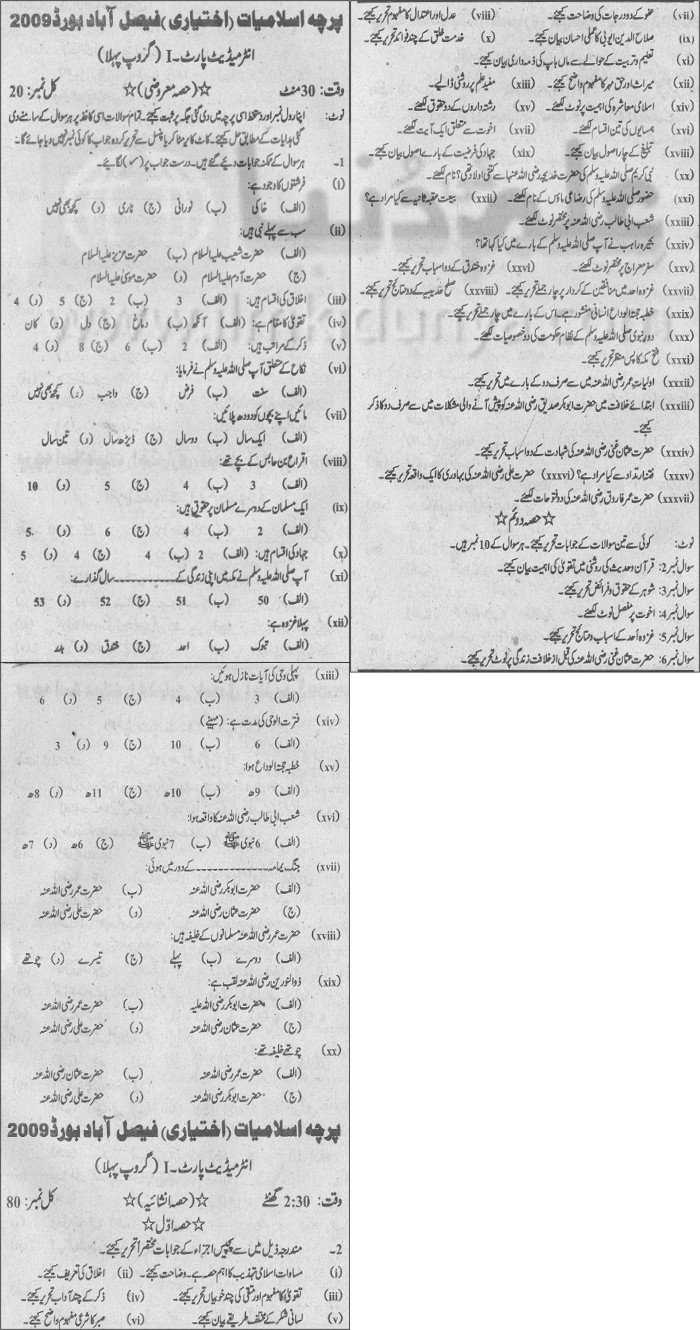 پرچہ اسلامیات (اختیاری) فیصل آباد بورڈ 2009
انٹرمیڈیٹ پارٹ-I (گروپ پہلا)
وقت: 30 منٹ ☆(حصہ معروضی)☆ کل نمبر: 20
نوٹ: اپنا رول نمبر اور دستخط اسی پرچہ میں دی گئی جگہ پر ثبت کیجئے۔ تمام سوالات اسی کاغذ پر ہر سوال کے سامنے دی
گئی ہدایات کے مطابق حل کیجئے۔ کاٹ کاٹ کر یا مٹا کر یا پنسل سے تحریر کردہ جواب کا کوئی نمبر نہیں دیا جائے گا۔
1- ہر سوال کے ممکنہ جوابات دیئے گئے ہیں۔ درست جواب پر (✓) لگائیے۔
(i) فرشتوں کا وجود ہے:
(الف) خاکی (ب) نورانی (ج) ناری (د) کچھ بھی نہیں
(ii) سب سے پہلے نبی ہیں:
(الف) حضرت شعیب علیہ السلام (ب) حضرت عزیز علیہ السلام
(ج) حضرت آدم علیہ السلام (د) حضرت موسیٰ علیہ السلام
(iii) اخلاق کی اقسام ہیں: (الف) 3 (ب) 2 (ج) 5 (د) 4
(iv) تقویٰ کا مقام ہے: (الف) آنکھ (ب) دماغ (ج) دل (د) کان
(v) ذکر کے مراتب ہیں: (الف) 2 (ب) 6 (ج) 8 (د) 4
(vi) نکاح کے متعلق آپ صلی اللہ علیہ وسلم نے فرمایا:
(الف) سنت (ب) فرض (ج) واجب (د) کچھ بھی نہیں
(vii) مائیں اپنے بچوں کو دودھ پلائیں:
(الف) ایک سال (ب) دو سال (ج) ڈیڑھ سال (د) تین سال
(viii) اقراع بن حابس کے بچے تھے:
(الف) 3 (ب) 4 (ج) 5 (د) 10
(ix) ایک مسلمان کے دوسرے مسلمان پر حقوق ہیں:
(الف) 2 (ب) 4 (ج) 6 (د) 5
(x) جہاد کی اقسام ہیں: (الف) 2 (ب) 4 (ج) 4 (د) 5
(xi) آپ صلی اللہ علیہ وسلم نے مکہ میں اپنی زندگی کے ـــــــــ سال گذارے۔
(الف) 50 (ب) 51 (ج) 52 (د) 53
(xii) پہلا غزوہ ہے:
(الف) تبوک (ب) احد (ج) خندق (د) بدر
(xiii) پہلی وحی کی آیات نازل ہوئیں:
(الف) 3 (ب) 4 (ج) 5 (د) 6
(xiv) فترت الوحی کی مدت ہے: (مہینے)
(الف) 6 (ب) 10 (ج) 9 (د) 3
(xv) خطبہ حجۃ الوداع ہوا:
(الف) 9ھ (ب) 10ھ (ج) 11ھ (د) 8ھ
(xvi) شعب ابی طالب رضی اللہ عنہ کا واقعہ ہوا:
(الف) 6 نبوی ﷺ (ب) 7 نبوی ﷺ (ج) 6ھ (د) 7ھ
(xvii) جنگ یمامہ ـــــــــ کے دور میں ہوئی:
(الف) حضرت ابوبکر رضی اللہ عنہ (ب) حضرت عمر رضی اللہ عنہ
(ج) حضرت عثمان رضی اللہ عنہ (د) حضرت علی رضی اللہ عنہ
(xviii) حضرت عمر رضی اللہ عنہ مسلمانوں کے خلیفہ ہیں:
(الف) دوسرے (ب) پہلے (ج) تیسرے (د) چوتھے
(xix) ذوالنورین رضی اللہ عنہ لقب ہے:
(الف) حضرت ابوبکر رضی اللہ علیہ (ب) حضرت عمر رضی اللہ عنہ
(ج) حضرت عثمان رضی اللہ عنہ (د) حضرت علی رضی اللہ عنہ
(xx) چوتھے خلیفہ تھے:
(الف) حضرت عمر رضی اللہ عنہ (ب) حضرت عثمان رضی اللہ عنہ
(ج) حضرت ابوبکر رضی اللہ عنہ (د) حضرت علی رضی اللہ عنہ
پرچہ اسلامیات (اختیاری) فیصل آباد بورڈ 2009
انٹرمیڈیٹ پارٹ-I (گروپ پہلا)
وقت: 2:30 گھنٹے ☆(حصہ انشائیہ)☆ کل نمبر: 80
☆ حصہ اوّل ☆
2- مندرجہ ذیل میں سے پچیس اجزاء کے جوابات مختصراً تحریر کیجئے۔
(i) مساوات اسلامی تہذیب کا اہم حصہ ہے۔ وضاحت کیجئے۔ (ii) اخلاق کی تعریف کیجئے۔
(iii) تقویٰ کا مفہوم اور متقی کی چند خوبیاں تحریر کیجئے۔ (iv) ذکر کے چند آداب تحریر کیجئے۔
(v) لسانی شکر کے مختلف طریقے بیان کیجئے۔ (vi) صبر کا شرعی مفہوم واضح کیجئے۔
(vii) عفو کے دو درجات کی وضاحت کیجئے۔ (viii) عدل اور اعتدال کا مفہوم تحریر کیجئے۔
(ix) صلاح الدین ایوبی کا عملی احسان بیان کیجئے۔ (x) خدمت خلق کے چند فوائد تحریر کیجئے۔
(xi) تعلیم و تربیت کے حوالے سے ماں باپ کی ذمہ داری بیان کیجئے۔
(xii) میراث اور حق مہر کا مفہوم واضح کیجئے۔ (xiii) مفید علم پر روشنی ڈالیے۔
(xiv) اسلامی معاشرہ کی اہمیت پر نوٹ لکھئے۔ (xv) رشتہ داروں کے دو حقوق لکھئے۔
(xvi) ہمسایوں کی تین اقسام لکھئے۔ (xvii) اخوت سے متعلق ایک آیت لکھئے۔
(xviii) تبلیغ کے چار اصول بیان کیجئے۔ (xix) جہاد کی فرضیت کے بارے اصول بیان کیجئے۔
(xx) نبی کریم صلی اللہ علیہ وسلم کی حضرت خدیجہ رضی اللہ عنہا سے کتنی اولاد تھی؟ نام لکھئے۔
(xxi) حضور صلی اللہ علیہ وسلم کی رضاعی ماؤں کے نام لکھئے۔ (xxii) بیعت عقبہ ثانیہ سے کیا مراد ہے؟
(xxiii) شعب ابی طالب رضی اللہ عنہ پر مختصر نوٹ لکھئے۔
(xxiv) بحیرہ راہب نے آپ صلی اللہ علیہ وسلم کے بارے میں کیا کہا تھا؟
(xxv) سفر معراج پر مختصر نوٹ لکھئے۔ (xxvi) غزوہ خندق کے دو اسباب تحریر کیجئے۔
(xxvii) غزوہ احد میں منافقین کے کردار پر چار جملے تحریر کیجئے۔ (xxviii) صلح حدیبیہ کے دو نتائج تحریر کیجئے۔
(xxix) خطبہ حجۃ الوداع انسانی منشور ہے۔ اس کے بارے میں چار جملے تحریر کیجئے۔
(xxx) دور نبوی صلی اللہ علیہ وسلم کے نظام حکومت کی دو خصوصیات لکھئے۔
(xxxi) فتح مکہ کا پس منظر تحریر کیجئے۔
(xxxii) اولیات عمر رضی اللہ عنہ میں سے صرف دو کے بارے میں تحریر کیجئے۔
(xxxiii) ابتدائے خلافت میں حضرت ابوبکر صدیق رضی اللہ عنہ کو پیش آنے والی مشکلات میں سے صرف دو کا ذکر
کیجئے۔
(xxxiv) حضرت عثمان غنی رضی اللہ عنہ کی شہادت کے دو اسباب تحریر کیجئے۔
(xxxv) فتنہ ارتداد سے کیا مراد ہے؟ (xxxvi) حضرت علی رضی اللہ عنہ کی بہادری کا ایک واقعہ تحریر کیجئے۔
(xxxvii) حضرت عمر فاروق رضی اللہ عنہ کی دو فتوحات لکھئے۔
☆ حصہ دوئم ☆
نوٹ: کوئی سے تین سوالات کے جوابات تحریر کیجئے۔ ہر سوال کے 10 نمبر ہیں۔
سوال نمبر 2: قرآن و حدیث کی روشنی میں تقویٰ کی اہمیت بیان کیجئے۔
سوال نمبر 3: شوہر کے حقوق و فرائض تحریر کیجئے۔
سوال نمبر 4: اخوت پر مفصل نوٹ لکھئے۔
سوال نمبر 5: غزوہ احد کے اسباب و نتائج تحریر کیجئے۔
سوال نمبر 6: حضرت عثمان غنی رضی اللہ عنہ کی قبل از خلافت زندگی پر نوٹ تحریر کیجئے۔